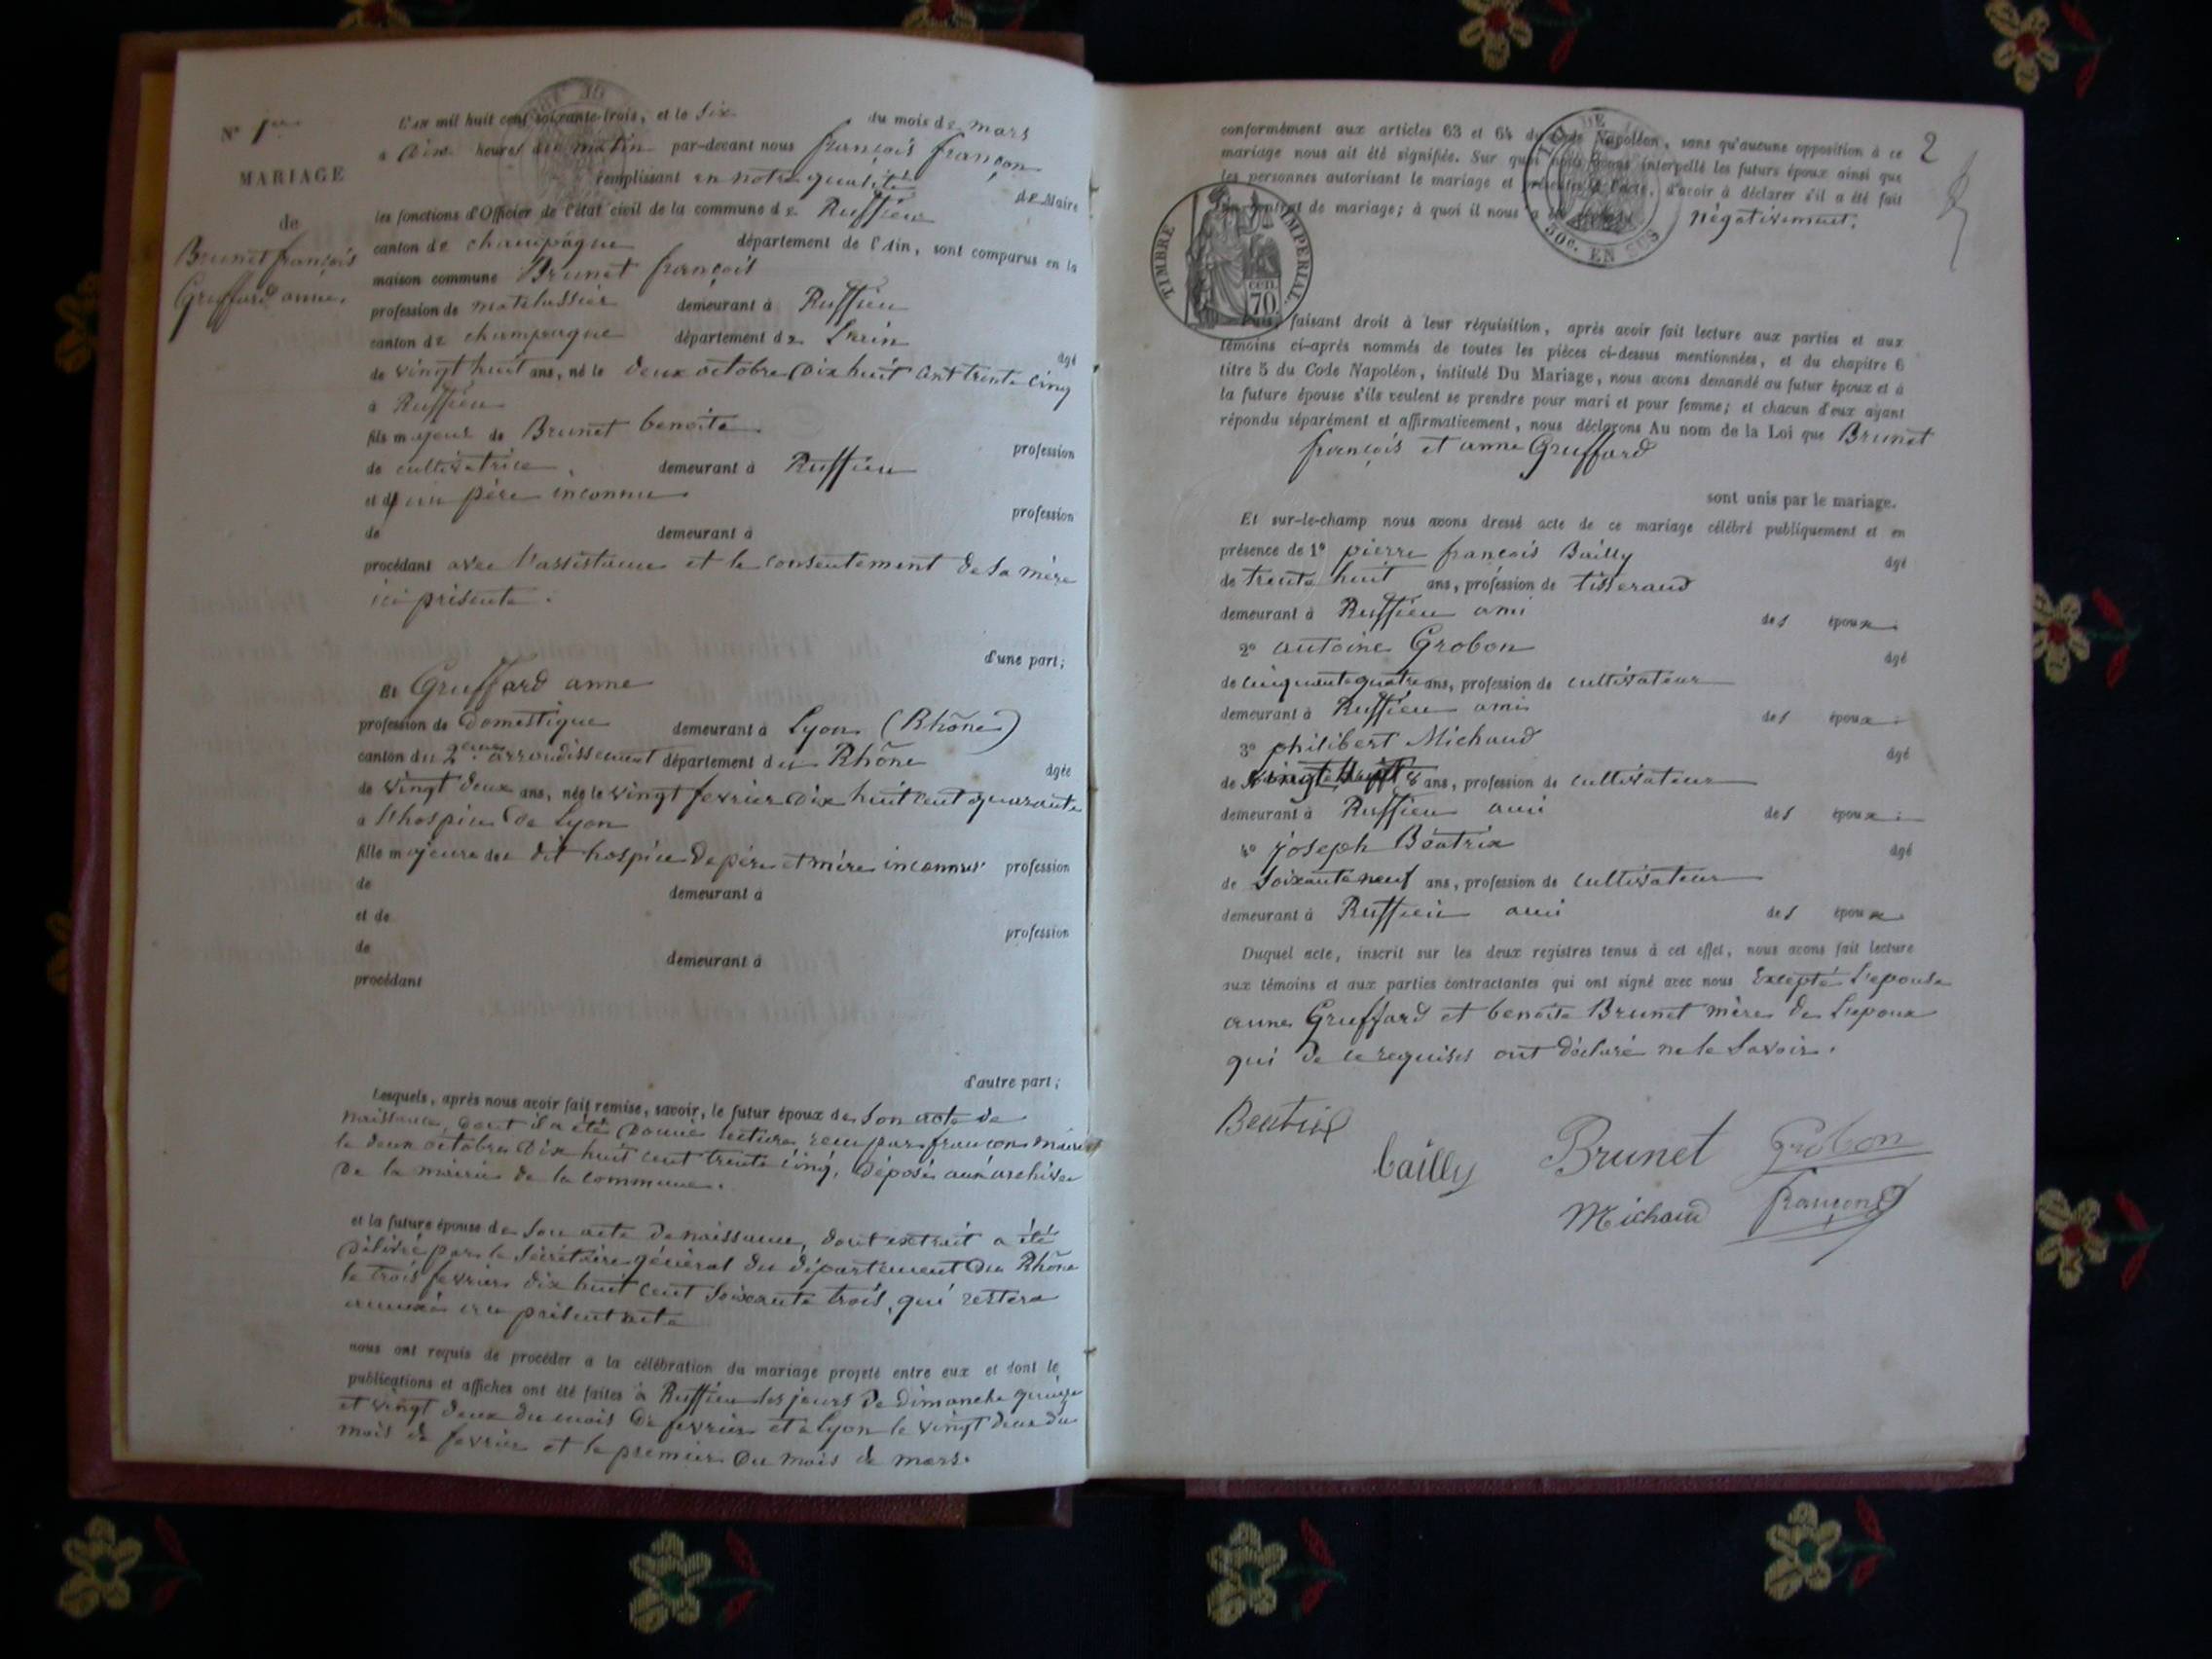 N° 1er
MARIAGE
de
Brunet françois
Gruffard anne.
L'an mil huit cent soixante-trois, et le Six du mois de mars
a Dix heures du matin par-devant nous françois françon
remplissant en notre qualité de Maire
les fonctions d'Officier de l'état civil de la commune de Ruffieu
canton de champagne département de l'Ain, sont comparus en la
maison commune Brunet françois
profession de matelassier demeurant à Ruffieu
canton de champagne département de Lain
âgé
de vingt huit ans, né le deux octobre Dix huit cent trente cinq
a Ruffieu
fils majeur de Brunet benoite
profession
de cultivatrice. demeurant à Ruffieu
et d'un père inconnu
profession
de demeurant à
procédant avec l'assistance et le consentement de Sa mère
ici présente.
d'une part;
Et Gruffard anne
profession de Domestique demeurant à Lyon (Rhône)
canton du 2eme arrondissement département du Rhône
âgée
de vingt deux ans, née le vingt fevrier Dix huit cent quarante
a l'hospice de Lyon
fille majeure du dit hospice de père et mère inconnus profession
de demeurant à
et de
profession
de demeurant à
procédant
d'autre part;
Lesquels, après nous avoir fait remise, savoir, le futur époux de Son acte de
naissance, dont il a été donné lecture reçu par françon maire
le deux octobre Dix huit cent trente cinq, déposé aux archives
de la mairie de la commune.
et la future épouse de Son acte de naissance, dont extrait a été
délivré par le Sécrétaire général du département du Rhône
le trois fevrier dix huit cent Soixante trois, qui restera
annexé au présent acte
nous ont requis de procéder a la célébration du mariage projeté entre eux et dont le
publications et affiches ont été faites à Ruffieu les jours de Dimanche quinze
et vingt deux du mois de fevrier et a Lyon le vingt deux du
mois de fevrier et le premier du mois de mars.
2
conformément aux articles 63 et 64 du Code Napoléon, sans qu'aucune opposition à ce
mariage nous ait été signifiée. Sur quoi nous avons interpellé les futurs époux ainsi que
les personnes autorisant le mariage et présentes à l'acte, d'avoir à déclarer s'il a été fait
un contrat de mariage; à quoi il nous a été négativement.
TIMBRE IMPÉRIAL.
CEN. 70
50c. EN SUS
faisant droit à leur réquisition, après avoir fait lecture aux parties et aux
témoins ci-après nommés de toutes les pièces ci-dessus mentionnées, et du chapitre 6
titre 5 du Code Napoléon, intitulé Du Mariage, nous avons demandé au futur époux et à
la future épouse s'ils veulent se prendre pour mari et pour femme; et chacun d'eux ayant
répondu séparément et affirmativement, nous déclarons Au nom de la Loi que Brunet
françois et anne Gruffard
sont unis par le mariage.
Et sur-le-champ nous avons dressé acte de ce mariage célébré publiquement et en
présence de 1° pierre françois Bailly
âgé
de trente huit ans, profession de tisserand
demeurant à Ruffieu ami des époux.
2° antoine Grobon
âgé
de cinquante quatre ans, profession de cultivateur
demeurant à Ruffieu ami des époux.
3° philibert Michaud
âgé
de ans, profession de cultivateur
demeurant à Ruffieu ami des époux.
4° joseph Béatrix
âgé
de Soixante neuf ans, profession de cultivateur
demeurant à Ruffieu ami des époux.
Duquel acte, inscrit sur les deux registres tenus à cet effet, nous avons fait lecture
aux témoins et aux parties contractantes qui ont signé avec nous Excepté L'epouse
anne Gruffard et benoite Brunet mère de L'epoux
qui de ce requises ont déclaré ne le Savoir.
Beatrix
bailly Brunet Grobon
Michaud françon